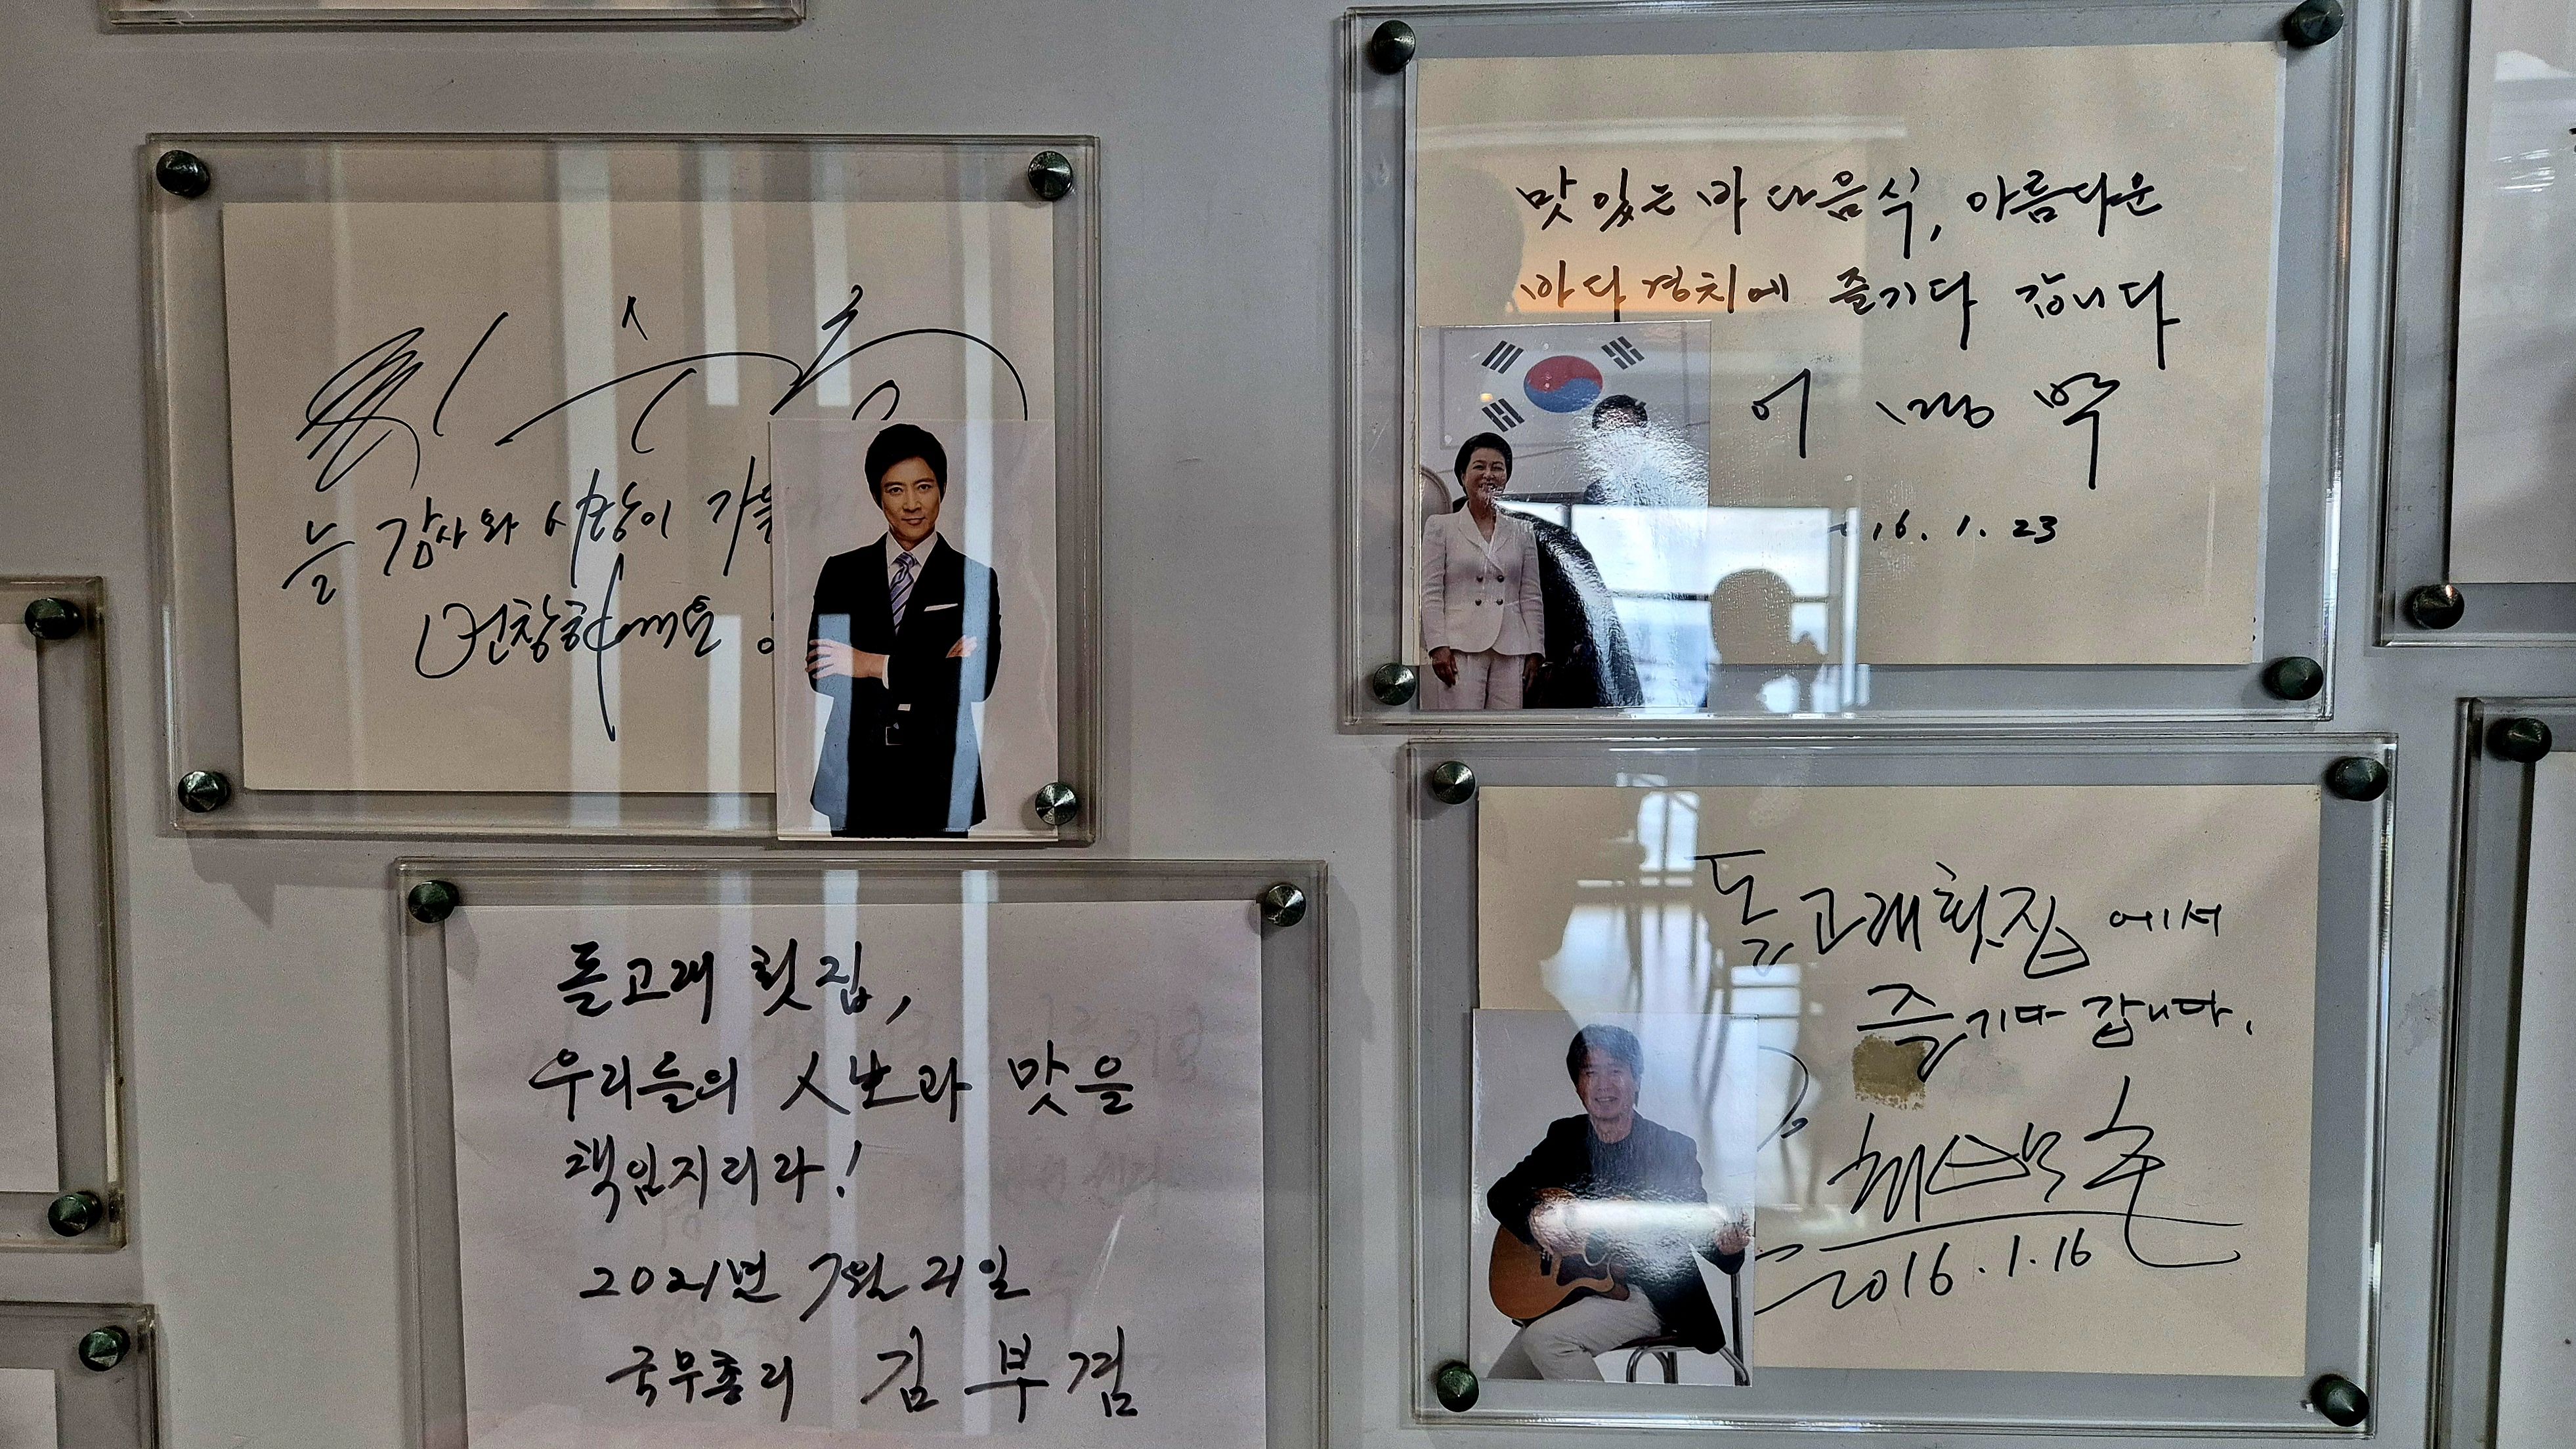 늘 감사와 사랑이 가득
번창하세요
맛있는 바다음식, 아름다운
바다 경치에 즐기다 갑니다
16. 1. 23
돌고래 횟집,
우리들의 人生과 맛을
책임지리라!
2021년 7월 21일
국무총리 김부겸
돌고래횟집에서
즐기다 갑니다.
2016.1.16